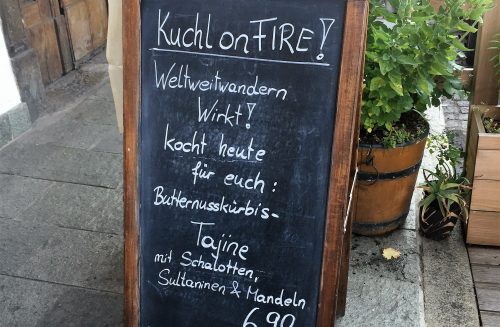 Kuchl on FIRE!
Weltweitwandern
Wirkt!
kocht heute
für euch:
Butternusskürbis-
Tajine
mit Schalotten,
Sultaninen & Mandeln
6,90